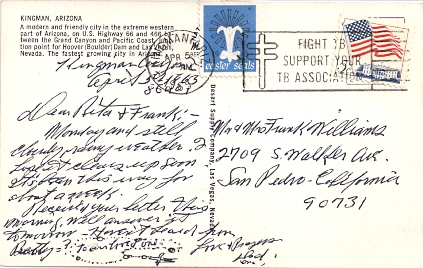 KINGMAN, ARIZONA
A modern and friendly city in the extreme western
part of Arizona, on U.S. Highway 66 and
tween the Grand Canyon and Pacific Coast
tion point for Hoover (Boulder) Dam and Las Vegas,
Nevada. The fastest growing city in Arizona
Kingman
April
Dear Rita & Frank:-
Monday and still
cloudy rainy weather. I
hope it clears up soon
Its been this way for
about a week.
Received your letter this
morning, will answer it
tomorrow. Haven't heard from
Betty?
Love & Prayers
Dad.
APR
easter seals
FIGHT TB
SUPPORT YOUR
TB ASSOCIATION
Desert Supply Company, Las Vegas, Nevada
Mr and Mrs Frank Williams
2709 S. Walker Ave.
San Pedro - California
90731